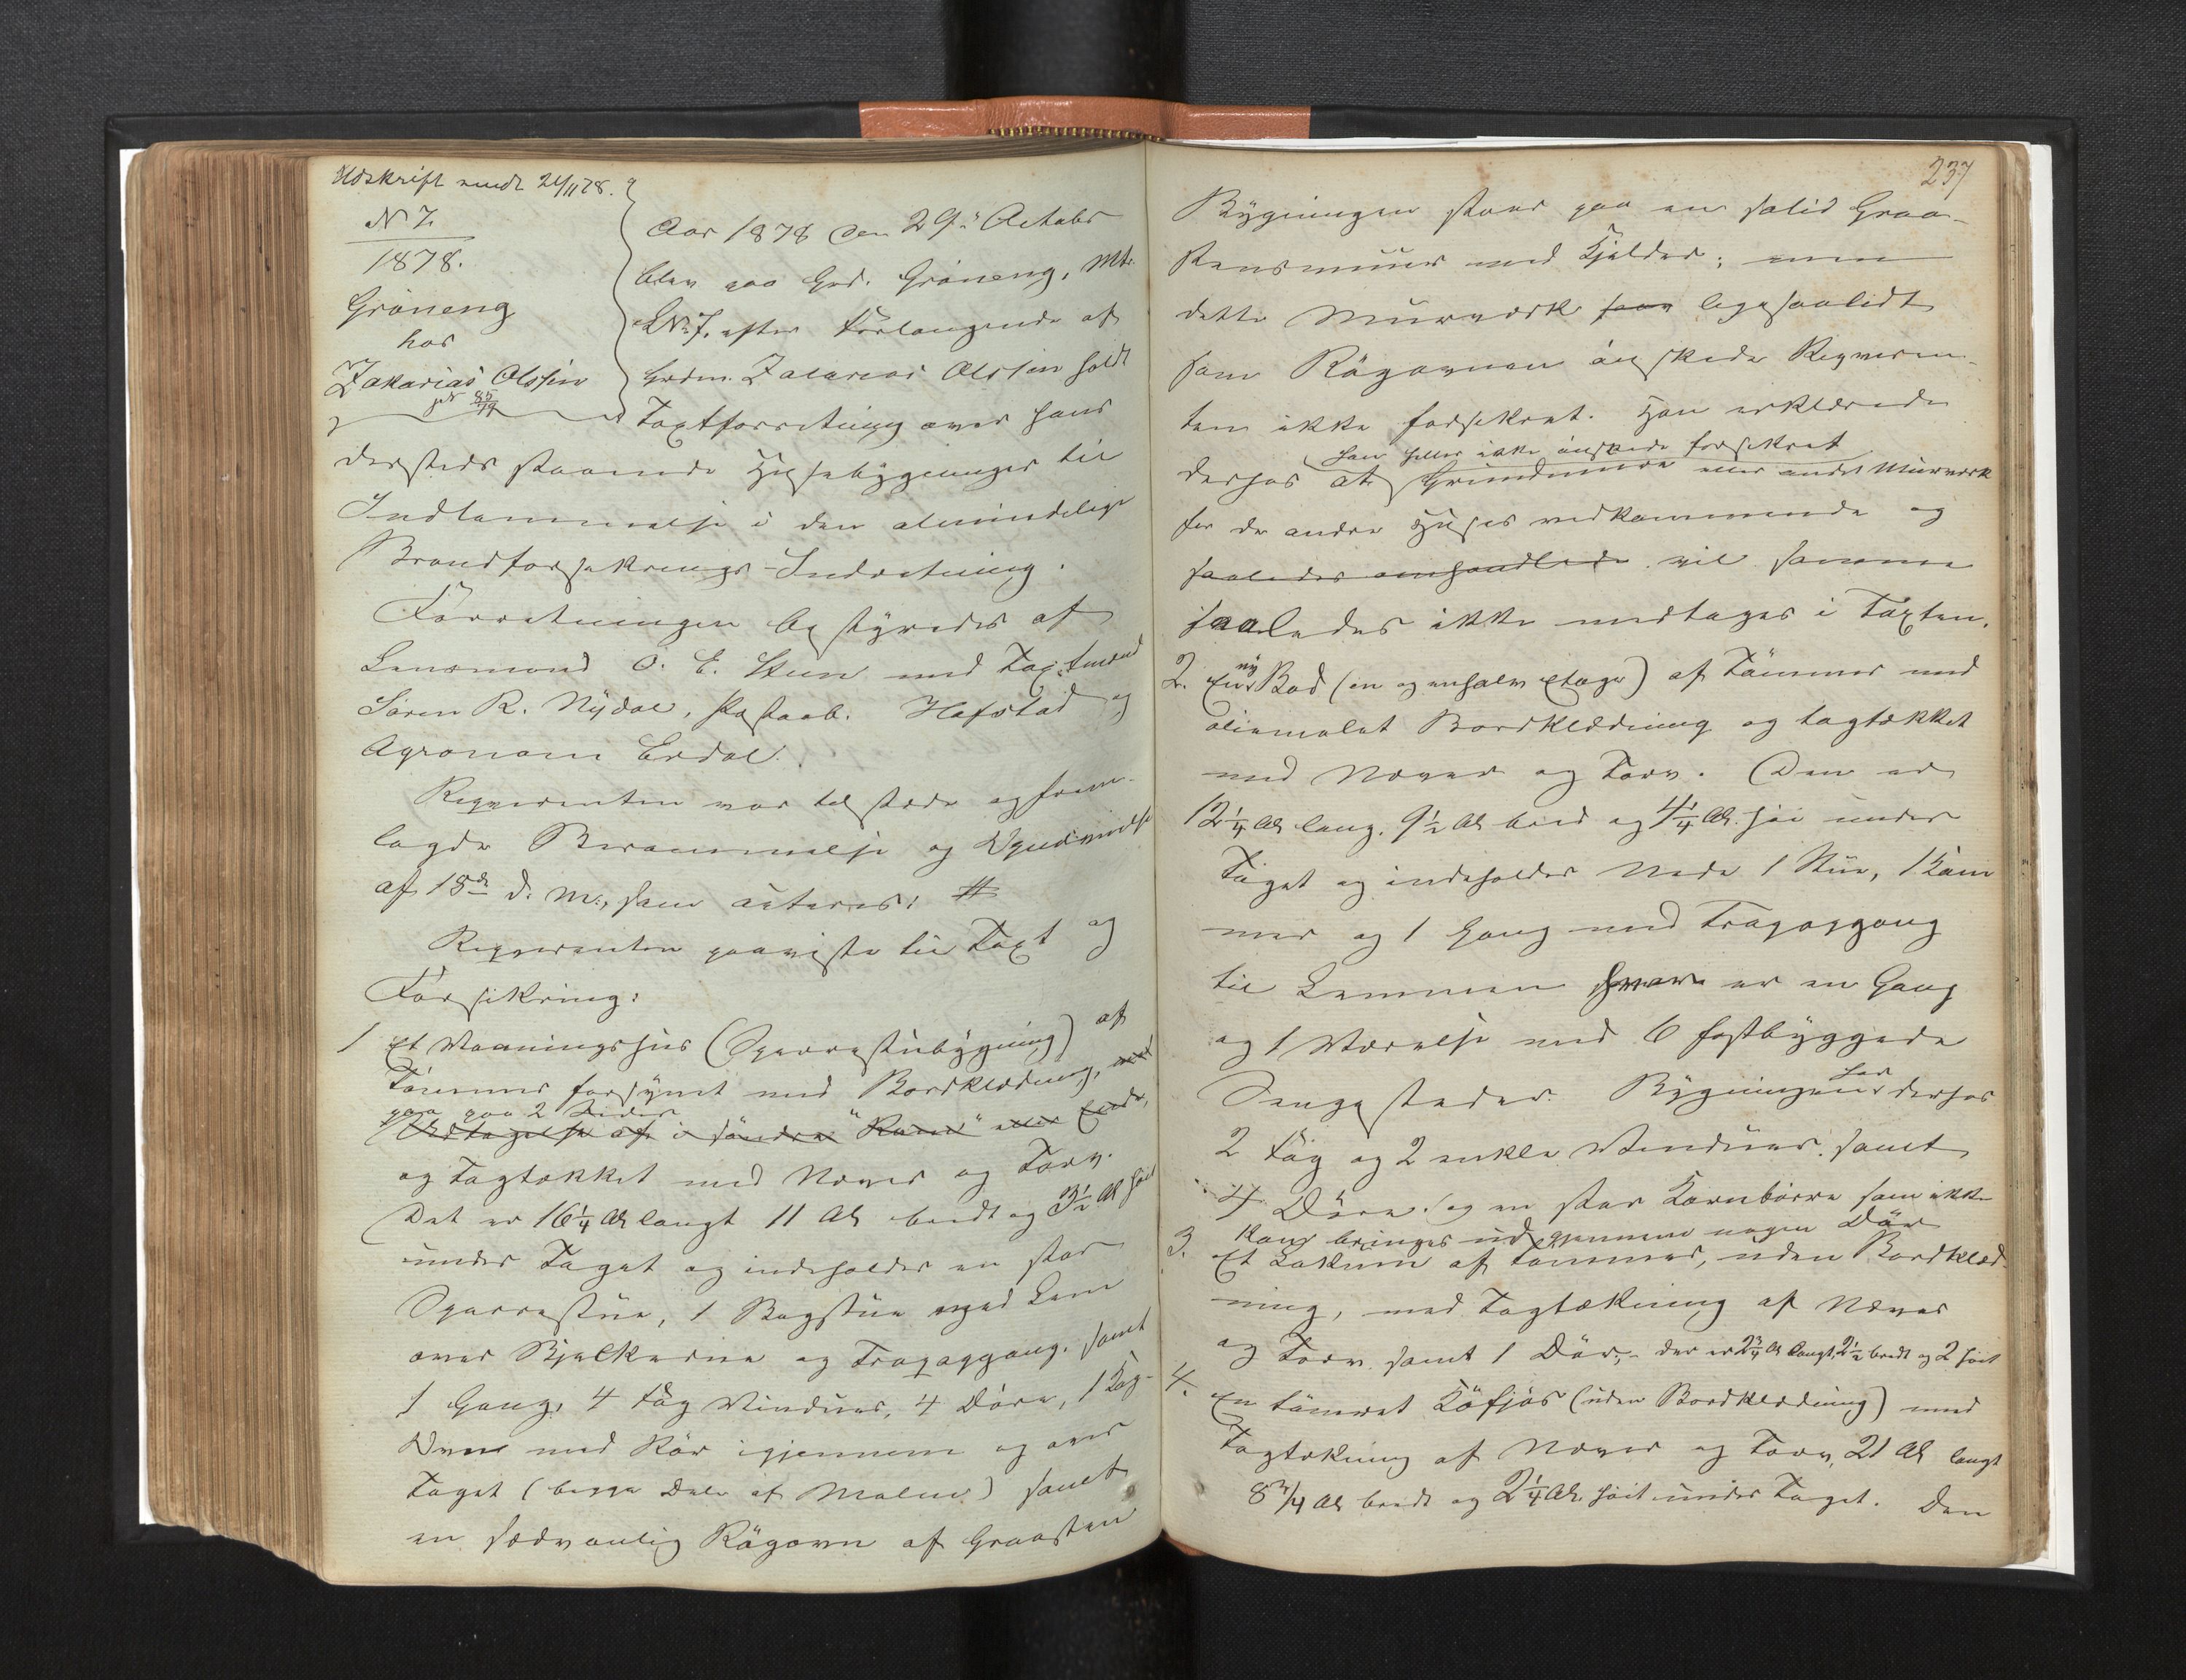 Udskrift sendt 21/11 78.
N 7.
1878.
Gröneng
hos
Zakarias Olssön
85/79
Aar 1878 den 29de Octobr
blev paa Grd. Gröneng, Mt:
LNr. 7, efter Forlangende af
Grdm. Zakarias Olssön holdt
Taxtforretning over hans
dersteds staaende Husebygninger til
Indlemmelse i den almindelige
Brandforsikrings-Indretning.
Forretningen bestyredes af
Lensmand O. E. Steen med Taxtmænd
Sören R. Nydal, Hafstad og
Agronom Erdal.
Reqvirenten var tilstede og frem-
lagde Berammelse og Opnævnelse
af 15de d. M., som acteres: #
Reqvirenten paaviste til Taxt og
Forsikring:
1 Et Vaaningshus (Sperrestubygning) af
Tömmer forsynet med Bordklædning, med
paa 2 Sider
Undtagelse af i söndre
og Tagtækket med Næver og Torv.
Det er 16 1/4 Al langt 11 Al bredt og 3 1/2 Al höit
under Taget og indeholder en stor
Sperrestue, 1 Bagstue med Lem
over Bjelkerne og Trapaggang, samt
1 Gang, 4 Fag Vinduer, 4 Döre, 1 Kog-
Ovn med Rör igjennem og over
Taget (begge Dele af Malm) samt
en sædvanlig Rögovn af Graasten
237
Bygningen staar paa en solid Graa-
stensmuur med Kjelder; men
dette Muurværk saa ligesaalidt
som Rögovnen önskede Reqviren-
ten ikke forsikret. Han erklærede
han heller ikke önskede forsikret
derhos at Grundmure eller andet Muurværk
for de andre Huses vedkommende og
saaledes omhandlede vil samme
saaledes ikke medtages i Taxten.
2. En ny Bod (en og enhalv Etage) af Tömmer med
oliemalet Bordklædning og tagtækket
med Næver og Torv. Den er
12 1/4 Al lang, 9 1/2 Al bred og 4 1/4 Al. höi under
Taget og indeholder Nede 1 Stue, 1 Kam
mer og 1 Gang med Trapopgang
til Lemmen hvor er en Gang
og 1 Værelse med 6 fastbyggede
Sengesteder. Bygningen har derhos
2 Fag og 2 enkle Vinduer samt
4 Döre. (og en stor Kornbörre som ikke
kan bringes ud gjennem nogen Dör
3. Et Lokum af Tömmer, uden Bordklæd-
ning, med Tagtækning af Næver
og Torv samt 1 Dör; - der er 2 3/4 Al langt, 2 1/2 bredt og 2 höit
4. En tömret Köfjös (uden Bordklædning) med
Tagtækning af Næver og Torv, 21 Al langt
8 3/4 Al bredt og 2 1/4 Al. höit under Taget. Den